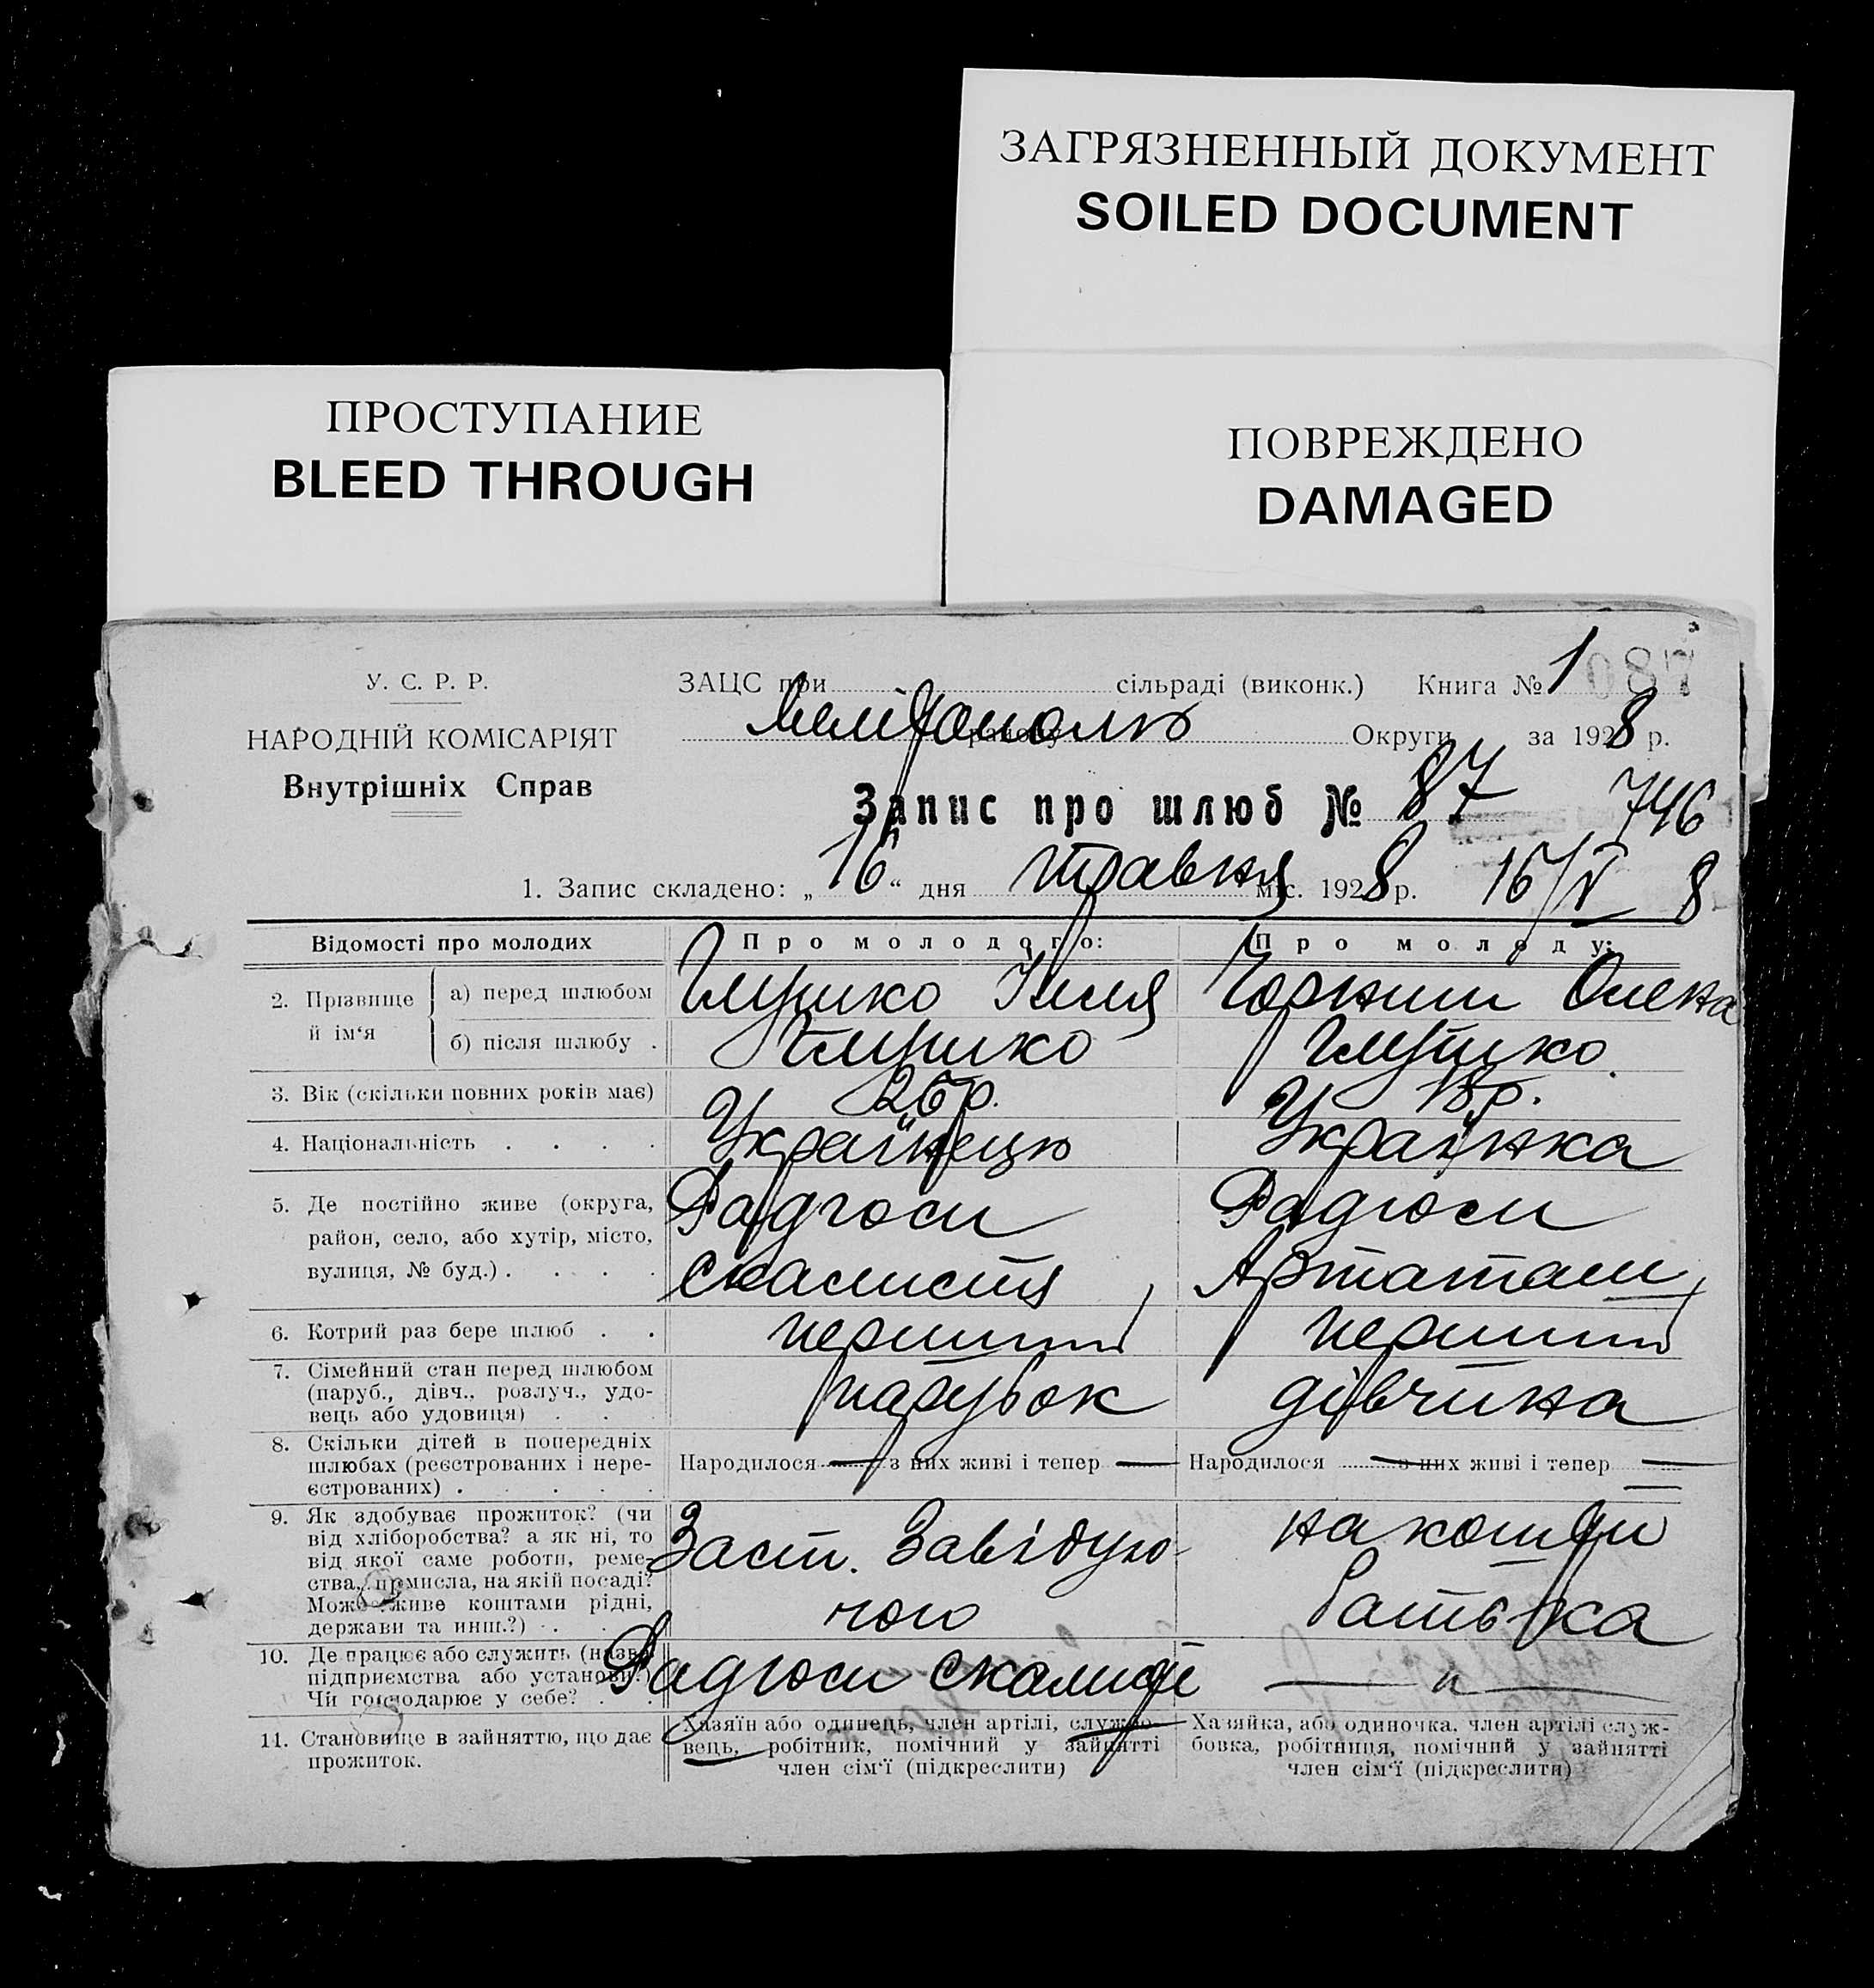 ЗАГРЯЗНЕННЫЙ ДОКУМЕНТ
SOILED DOCUMENT
ПРОСТУПАНИЕ
BLEED THROUGH
ПОВРЕЖДЕНО
DAMAGED
У. С. Р. Р.
НАРОДНІЙ КОМІСАРІЯТ
Внутрішніх Справ
087
ЗАЦС при сільраді (виконк.) Книга № 1
району Округи за 1928 р.
Запис про шлюб № 87 746
1. Запис складено: „16“ дня травня міс. 1928 р. 16/V 8
Відомості про молодих Про молодого: Про молоду:
2. Прізвище й ім‘я
а) перед шлюбом Глушко Ілля Олена
б) після шлюбу . Глушко Глушко
3. Вік (скільки повних років має) 26 р. 18 р.
4. Національність . . . . Українець Українка
5. Де постійно живе (округа,
район, село, або хутір, місто,
вулиця, № буд.) . . . .
Радгосп Радгосп
6. Котрий раз бере шлюб . . перший перший
7. Сімейний стан перед шлюбом
(паруб., дівч., розлуч., удо-
вець або удовиця) . . .
парубок дівчина
8. Скільки дітей в попередніх
шлюбах (реєстрованих і нере-
єстрованих) . . . . .
Народилося — з них живі і тепер — Народилося — з них живі і тепер —
9. Як здобуває прожиток? (чи
від хліборобства? а як ні, то
від якої саме роботи, реме-
ства, промисла, на якій посаді?
Може живе коштами рідні,
держави та инш.?) . .
Заст. Завідую-
чого
на кошти
батька
10. Де працює або служить (назва
підприємства або установи?)
Чи господарює у себе? . .
Радгосп — „ —
11. Становище в зайняттю, що дає
прожиток.
Хазяїн або одинець, член артілі, службо-
вець, робітник, помічний у зайнятті
член сім‘ї (підкреслити)
Хазяйка, або одиночка, член артілі служ-
бовка, робітниця, помічний у зайнятті
член сім‘ї (підкреслити)